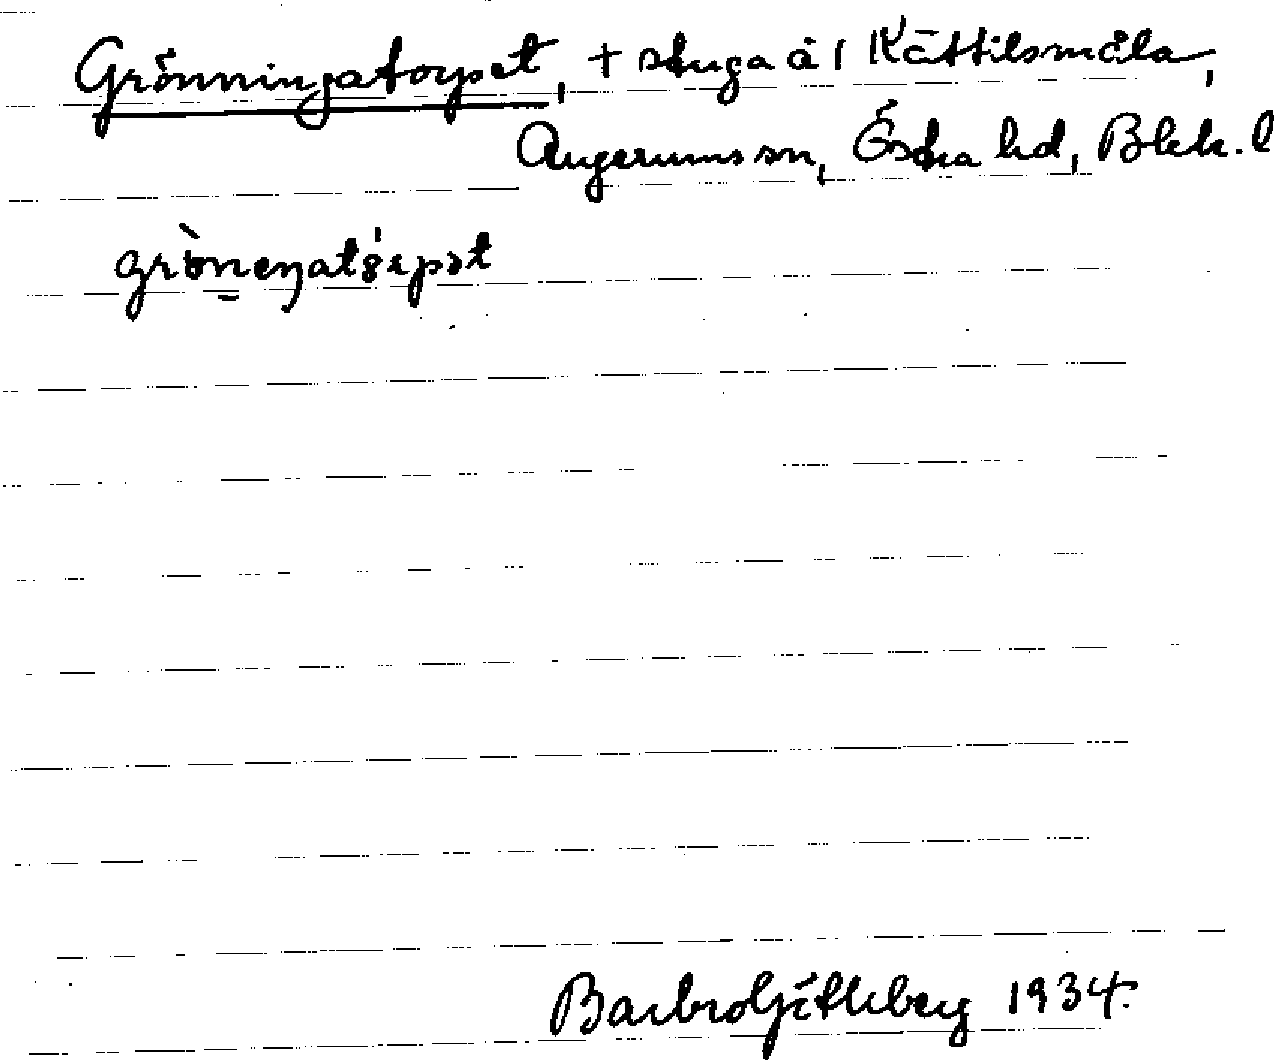 Grönningatorpet, + stuga å 1 Kättilsmåla,
Augerums sn, Östra hd, Blek. l
Barbro Götheberg 1934.